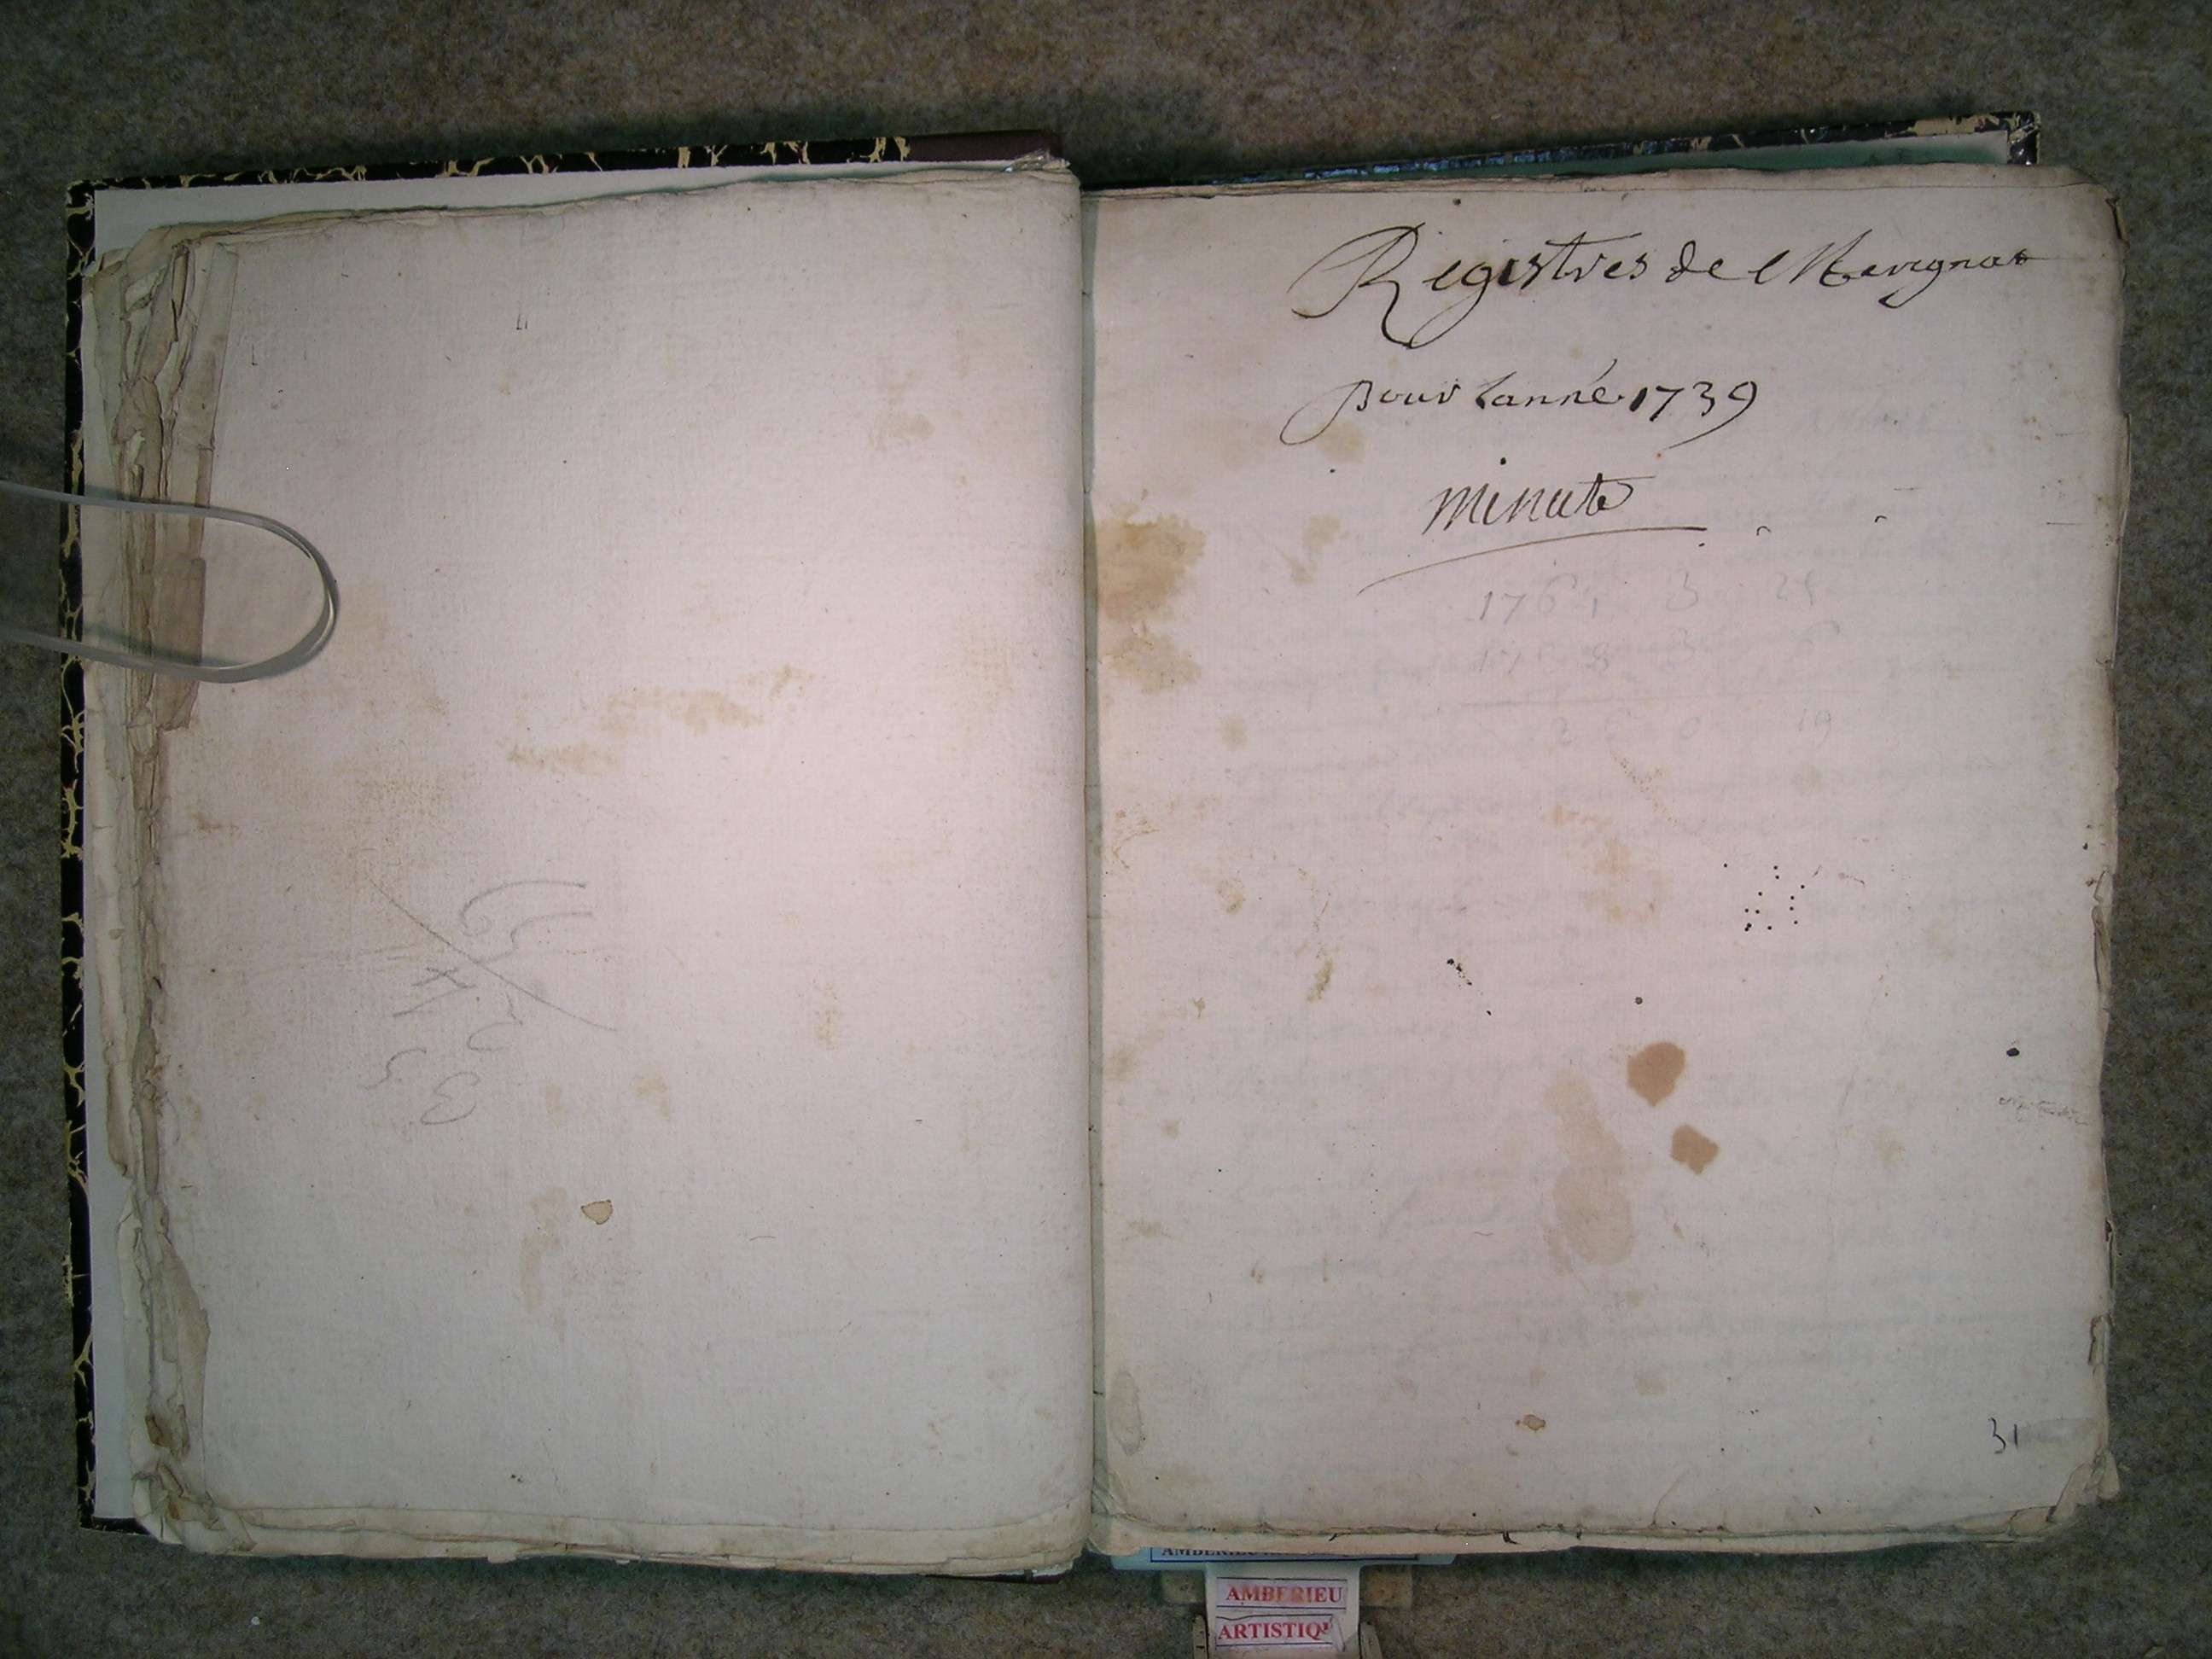 Registres de Merignat
pour lanné 1739
minute
1764 3 25
1738 3 6
26 0 19
31
AMBERIEU
ARTISTIQ